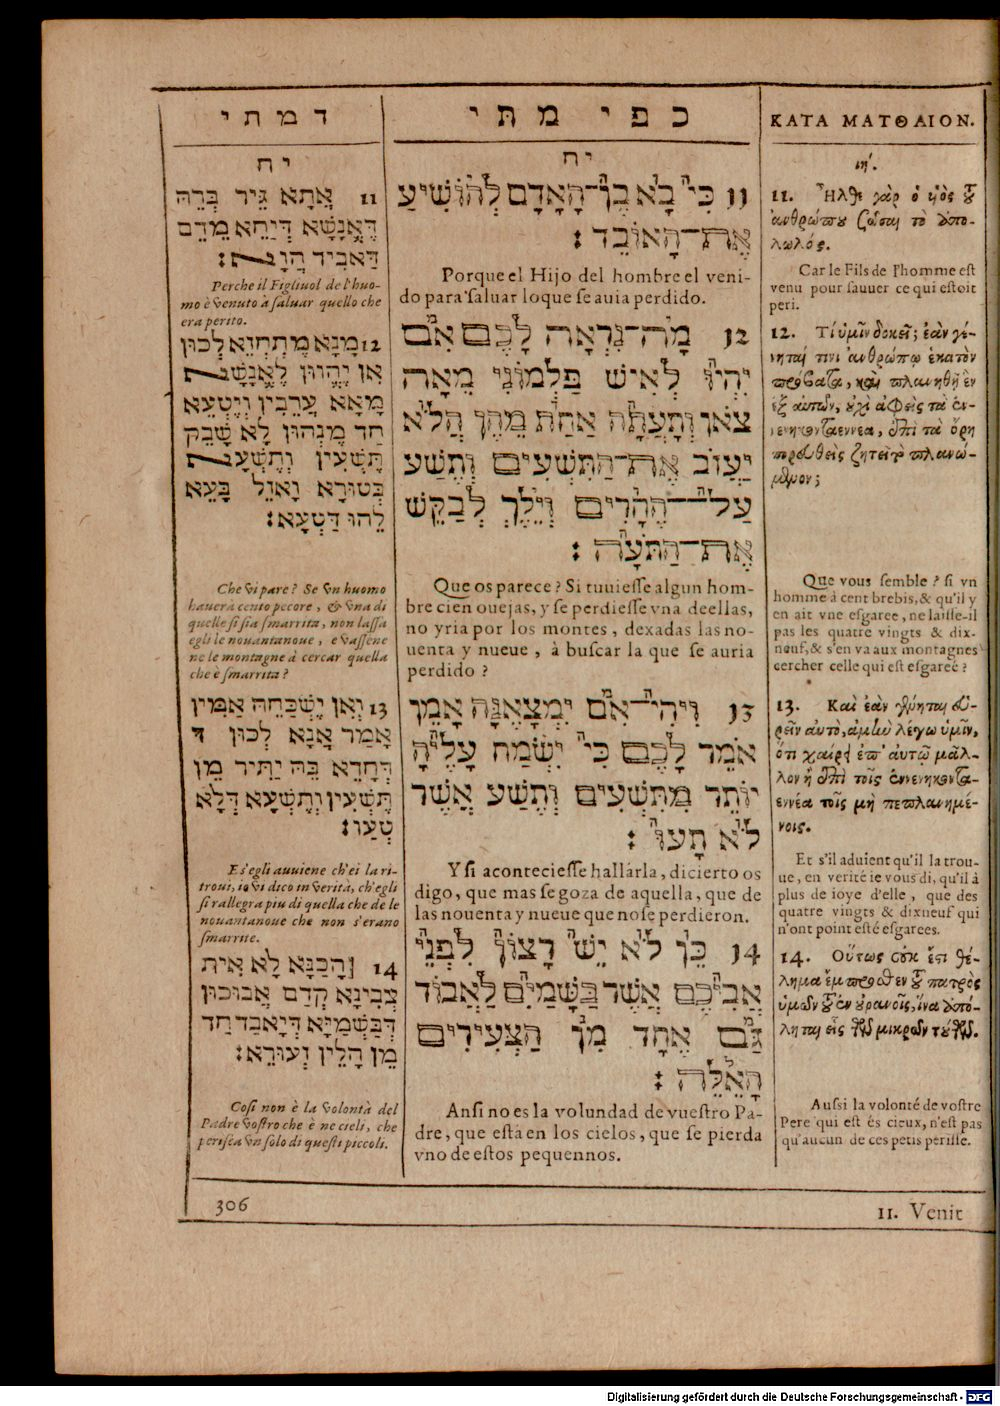 דמתי
יח
11 אֲתָא גֵּיר בְּרֵהּ
דֶּאֱנָשָׁא דְּיַחֵא מֵדֵם
דַּאבִיד הֲוָא׃
Perche il Figliuol de l'huo-
mo è venuto a saluar quello che
era perito.
12 מָנָא מֶתְחֲזֵא לְכוּן
אִן יֶהֱווּן לֶאֱנָשׁ
מָאא עֲרֵבִין וְיֶטְעֵא
חַד מֶנְהוּן לָא שָׁבֵק
תֶּשְׁעִין וְתֶשְׁעָא
בְּטוּרָא וָאזֵל בָּעֵא
לֵהוּ דַּטְעָא׃
Che vi pare? Se vn huomo
hauerà cento pecore, & vna di
quelle si sia smarrita, non lassa
egli le nouantanoue, e vassene
ne le montagne à cercar quella
che è smarrita?
13 וְאִן יֶשְׁכַּחֵהּ אַמִּין
אָמַר אֲנָא לְכוּן דּ
דְּחָדֵא בֵּהּ יַתִּיר מִן
תֶּשְׁעִין וְתֶשְׁעָא דְּלָא
טְעַו׃
E s'egli auuiene ch'ei la ri-
troui, io vi dico in verità, ch'egli
si rallegra piu di quella che de le
nouantanoue che non s'erano
smarrite.
14 הָכַנָּא לָא אִית
צִבְינָא קְדָם אֲבוּכוּן
דְּבַשְׁמַיָּא דְּיָאבַד חַד
מֵן הָלֵין זְעוּרֵא׃
Cosi non è la volontà del
Padre vostro che è ne cieli, che
perisca vn solo di questi piccoli.
כפי מתי
יח
11 כִּי בָא בֶן־הָאָדָם לְהוֹשִׁיעַ
אֶת־הָאוֹבֵד׃
Porque el Hijo del hombre el veni-
do para saluar lo que se auia perdido.
12 מָה־נִרְאָה לָכֶם אִם
יִהְיוּ לְאִישׁ פַּלְמוֹנִי מֵאָה
צֹאן וְתָעֲתָה אַחַת מֵהֶן הֲלֹא
יַעֲזוֹב אֶת־הַתִּשְׁעִים וְתֶשַׁע
עַל־הֶהָרִים וְיֵלֶךְ לְבַקֵּשׁ
אֶת־הַתֹּעָה׃
Que os parece? Si tuuiesse algun hom-
bre cien ouejas, y se perdiesse vna deellas,
no yria por los montes, dexadas las no-
uenta y nueue, à buscar la que se auria
perdido?
13 וִיהִי־אִם יִמְצָאֶנָּה אָמֵן
אֹמֵר לָכֶם כִּי יִשְׂמַח עָלֶיהָ
יוֹתֵר מִתִּשְׁעִים וְתֶשַׁע אֲשֶׁר
לֹא תָעוּ׃
Y si aconteciesse hallárla, dicierto os
digo, que mas se goza de aquella, que de
las nouenta y nueue que no se perdieron.
14 כֵּן לֹא יֵשׁ רָצוֹן לִפְנֵי
אֲבִיכֶם אֲשֶׁר בַּשָּׁמַיִם לַאֲבוֹד
גַּם אֶחָד מִן הַצְּעִירִים
הָאֵלֶּה׃
Ansi no es la volundad de vuestro Pa-
dre, que está en los cielos, que se pierda
vno de estos pequennos.
ΚΑΤΑ ΜΑΤΘΑΙΟΝ.
ιη΄.
11. Ἦλθε γὰρ ὁ υἱὸς τοῦ
ἀνθρώπου ζῶσαι τὸ ἀπο-
λωλός.
Car le Fils de l'homme est
venu pour sauuer ce qui estoit
peri.
12. Τί ὑμῖν δοκεῖ; ἐὰν γέ-
νηταί τινι ἀνθρώπῳ ἑκατὸν
πρόβατα, καὶ πλανηθῇ ἓν
ἐξ αὐτῶν, οὐχὶ ἀφεὶς τὰ ἐν-
νενηκονταεννέα, ἐπὶ τὰ ὄρη
πορευθεὶς ζητεῖ τὸ πλανώ-
μενον;
Que vous semble? si vn
homme à cent brebis, & qu'il y
en ait vne esgaree, ne laisse-il
pas les quatre vingts & dix-
neuf, & s'en va aux montagnes
cercher celle qui est esgaree?
13. Καὶ ἐὰν γένηται εὑ-
ρεῖν αὐτὸ, ἀμὴν λέγω ὑμῖν,
ὅτι χαίρει ἐπ' αὐτῷ μᾶλ-
λον ἢ ἐπὶ τοῖς ἐννενηκοντα-
εννέα τοῖς μὴ πεπλανημέ-
νοις.
Et s'il aduient qu'il la trou-
ue, en verité ie vous di, qu'il à
plus de ioye d'elle, que des
quatre vingts & dixneuf qui
n'ont point esté esgarees.
14. Οὕτως οὐκ ἔστι θέ-
λημα ἔμπροσθεν τοῦ πατρὸς
ὑμῶν τοῦ ἐν οὐρανοῖς, ἵνα ἀπό-
ληται εἷς τῶν μικρῶν τούτων.
Aussi la volonté de vostre
Pere qui est és cieux, n'est pas
qu'aucun de ces petis perisse.
306
11. Venit
Digitalisierung gefördert durch die Deutsche Forschungsgemeinschaft - DFG